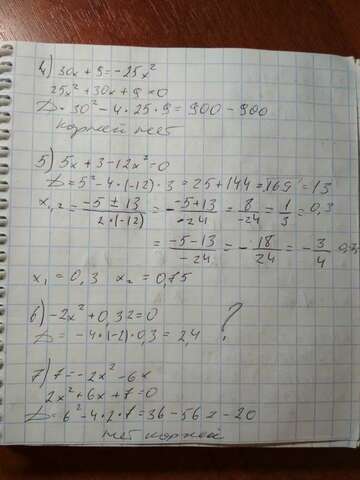 4) 30x + 9 = -25x²
25x² + 30x + 9 = 0
D = 30² - 4 · 25 · 9 = 900 - 900
корней нет
5) 5x + 3 - 12x² = 0
D = 5² - 4 · (-12) · 3 = 25 + 144 = 169 = 13
x₁,₂ = -5 ± 13 / 2 · (-12) = -5 + 13 / -24 = 8 / -24 = 1 / 3 = 0,3
= -5 - 13 / -24 = - 18 / 24 = - 3 / 4
x₁ = 0,3 x₂ = 0,75
6) -2x² + 0,32 = 0 ?
D = -4 · (-2) · 0,3 = 2,4
7) 7 = -2x² - 6x
2x² + 6x + 7 = 0
D = 6² - 4 · 2 · 7 = 36 - 56 = -20
нет корней